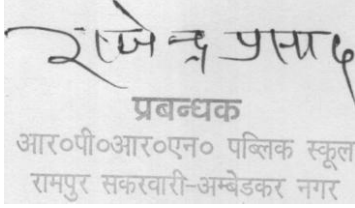 राजेन्द्र प्रसाद
प्रबन्धक
आर०पी०आर०एन० पब्लिक स्कूल
रामपुर सकरवारी-अम्बेडकर नगर